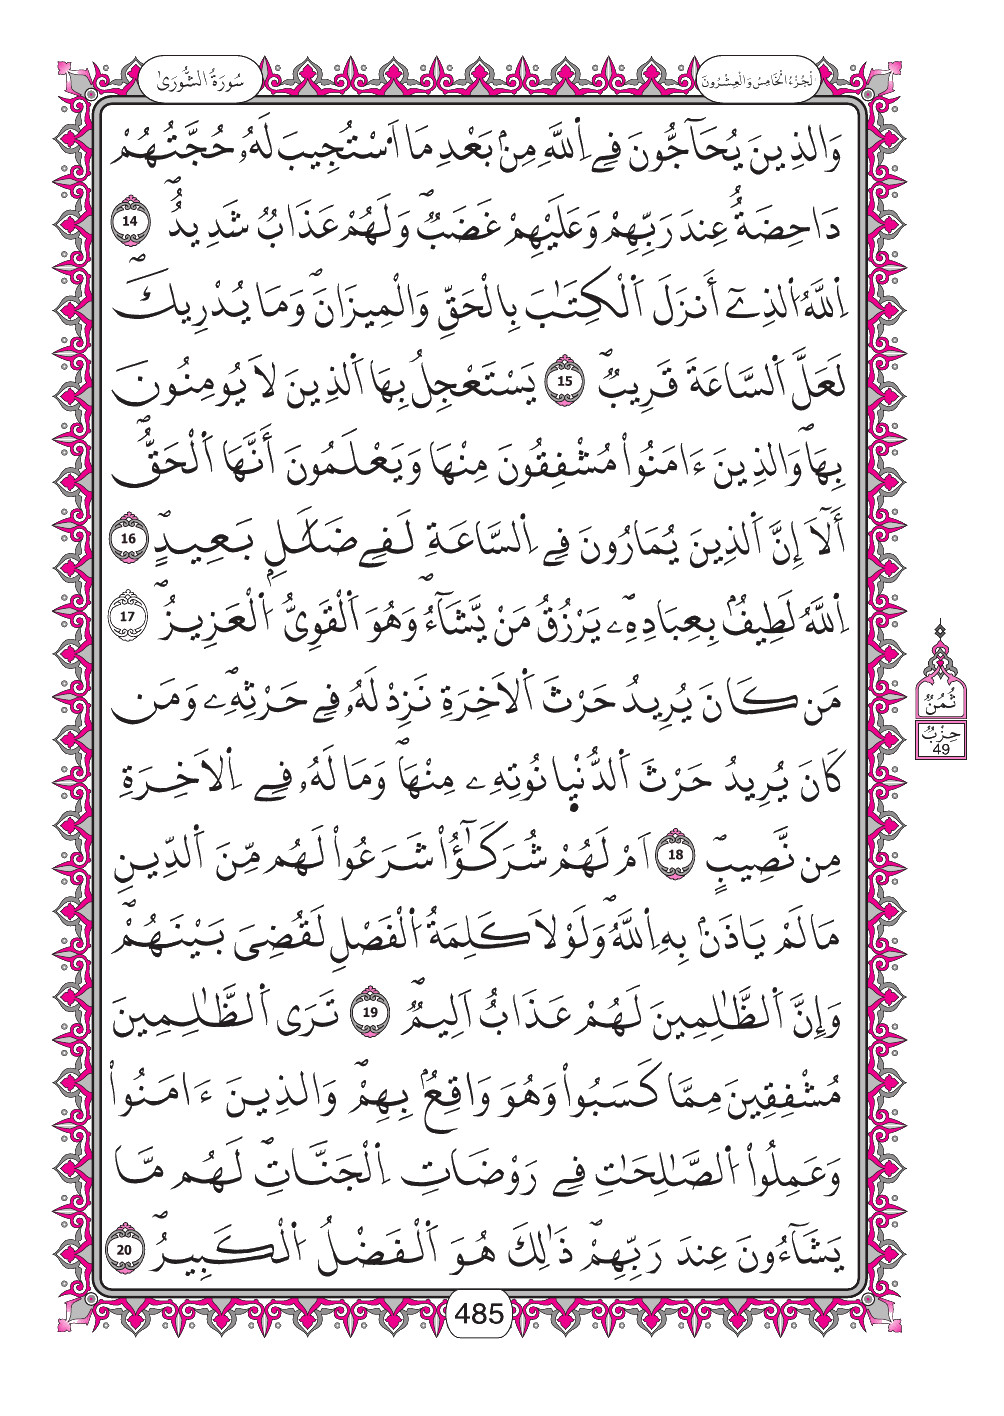 اَ۬لْجُزْءُ اُ۬لْخَامِسُ وَالْعِشْرُونَ
سُورَةُ اُ۬لشُّورَىٰ
وَالذِينَ يُحَآجُّونَ فِے اِ۬للَّهِ مِنۢ بَعْدِ مَا اَ۟سْتُجِيبَ لَهُۥ حُجَّتُهُمْ
دَاحِضَةٌ عِندَ رَبِّهِمْ وَعَلَيْهِمْ غَضَبٞ وَلَهُمْ عَذَابٞ شَدِيدٌۖ 14
اِ۬للَّهُ اُ۬لذِےٓ أَنزَلَ اَ۬لْكِتَٰبَ بِالْحَقِّ وَالْمِيزَانَۖ وَمَا يُدْرِيكَۖ
لَعَلَّ اَ۬لسَّاعَةَ قَرِيبٞۖ 15 يَسْتَعْجِلُ بِهَا اَ۬لذِينَ لَا يُومِنُونَ
بِهَاۖ وَالذِينَ ءَامَنُواْ مُشْفِقُونَ مِنْهَا وَيَعْلَمُونَ أَنَّهَا اَ۬لْحَقُّۖ
أَلَآ إِنَّ اَ۬لذِينَ يُمَارُونَ فِے اِ۬لسَّاعَةِ لَفِے ضَلَٰلِۢ بَعِيدٍۖ 16
اِ۬للَّهُ لَطِيفُۢ بِعِبَادِهِۦۖ يَرْزُقُ مَنْ يَّشَآءُۖ وَهُوَ اَ۬لْقَوِيُّ اُ۬لْعَزِيزُۖ 17
مَن كَانَ يُرِيدُ حَرْثَ اَ۬لَاخِرَةِ نَزِدْ لَهُۥ فِے حَرْثِهِۦۖ وَمَن
كَانَ يُرِيدُ حَرْثَ اَ۬لدُّنْي۪ا نُوتِهِۦ مِنْهَاۖ وَمَا لَهُۥ فِے اِ۬لَاخِرَةِ
مِن نَّصِيبٍۖ 18 اَمْ لَهُمْ شُرَكَٰٓؤُاْ شَرَعُواْ لَهُم مِّنَ اَ۬لدِّينِ
مَا لَمْ يَاذَنۢ بِهِ اِ۬للَّهُۖ وَلَوْلَا كَلِمَةُ اُ۬لْفَصْلِ لَقُضِيَ بَيْنَهُمْۖ
وَإِنَّ اَ۬لظَّٰلِمِينَ لَهُمْ عَذَابٌ اَلِيمٞ 19 تَرَى اَ۬لظَّٰلِمِينَ
مُشْفِقِينَ مِمَّا كَسَبُواْ وَهُوَ وَاقِعُۢ بِهِمْۖ وَالذِينَ ءَامَنُواْ
وَعَمِلُواْ اُ۬لصَّٰلِحَٰتِ فِے رَوْضَاتِ اِ۬لْجَنَّاتِۖ لَهُم مَّا
يَشَآءُونَ عِندَ رَبِّهِمْۖ ذَٰلِكَ هُوَ اَ۬لْفَضْلُ اُ۬لْكَبِيرُۖ 20
ثُمُنُ
حِزْبُ
49
485